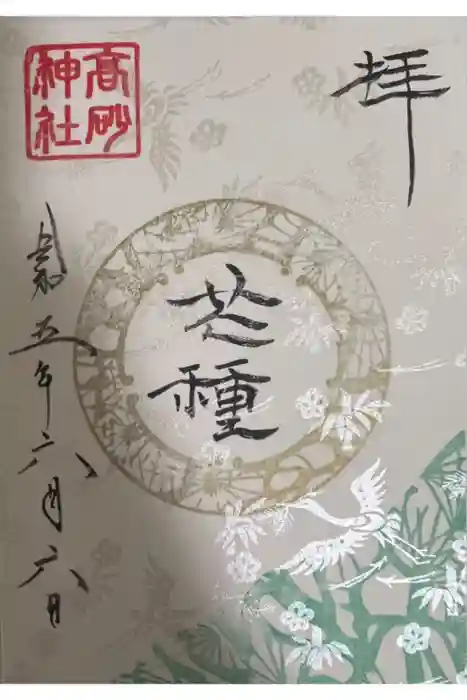 拝
芒種
高砂
神社
令和五年六月六日